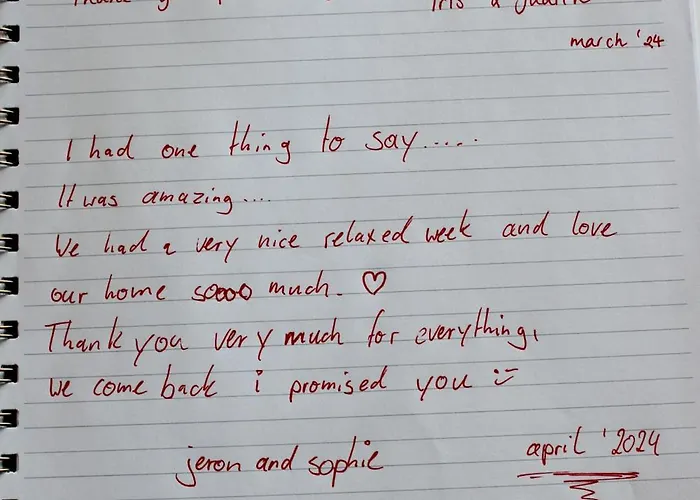 march '24
I had one thing to say.....
It was amazing....
We had a very nice relaxed week and love
our home soooo much. ♡
Thank you very much for everything,
We come back i promised you :)
jeron and sophie
april '2024